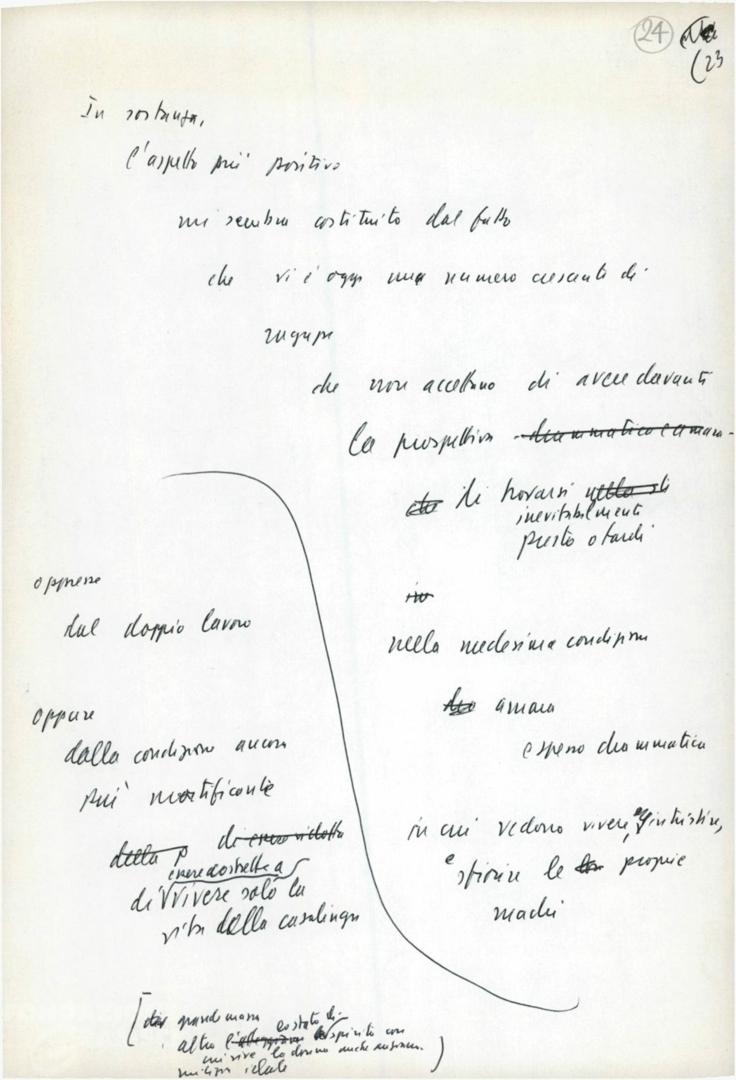 24
(23
In sostanza,
l'aspetto più positivo
mi sembra costituito dal fatto
che vi è oggi un numero crescente di
ragazze
che non accettano di avere davanti
la prospettiva drammatica e amara
che di trovarsi nella di
inevitabilmente
presto o tardi
in
nella medesima condizione
amara
e spesso drammatica
in cui vedono vivere, e intristire,
e sfiorire le proprie
madri
oppresse
dal doppio lavoro
oppure
dalla condizione ancora
più mortificante
della di essere ridotte
essere costrette a
di vivere solo la
vita della casalinga
grande massa
altro spirito con
cui vive la donna anche anziana